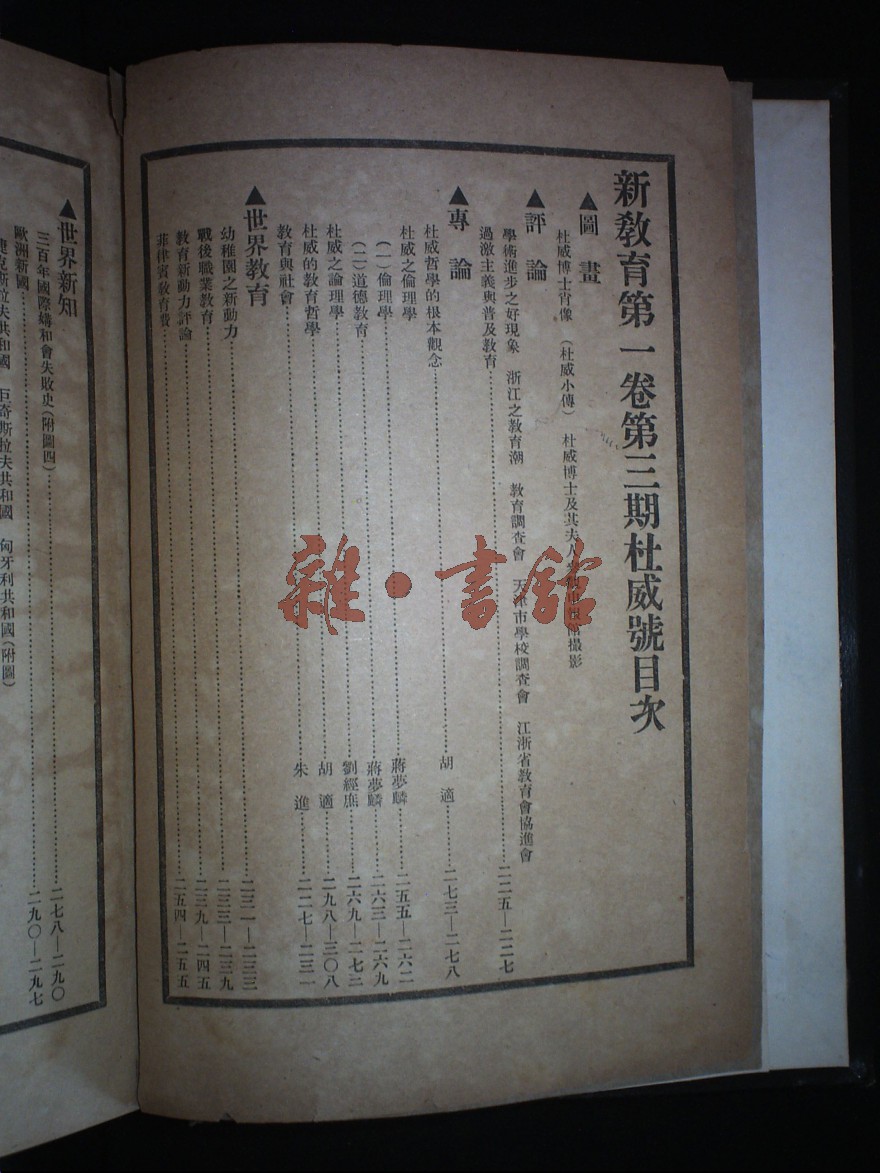 新教育第一卷第三期杜威號目次
▲圖畫
杜威博士肖像 (杜威小傳) 杜威博士及其夫人 攝影
▲評論
學術進步之好現象 浙江之教育潮 教育調查會 天津市學校調查會 江浙省教育會協進會
過激主義與普及教育 二二五—二二七
▲專論
杜威哲學的根本觀念 胡適 二七三—二七八
杜威之倫理學 蔣夢麟 二五五—二六二
(一)倫理學 蔣夢麟 二六三—二六九
(二)道德教育 劉經庶 二六九—二七三
杜威之論理學 胡適 二九八—三〇八
杜威的教育哲學 朱進 二二七—二三一
教育與社會
▲世界教育
幼稚園之新動力 二三一—二三三
戰後職業教育 二三三—二三九
教育新動力評論 二三九—二四五
菲律賓教育費 二五四—二五五
▲世界新知
三百年國際媾和會失敗史(附圖四) 二七八—二九〇
歐洲新國 二九〇—二九七
捷克斯拉夫共和國 巨哥斯拉夫共和國 匈牙利共和國(附圖)
雜·書館